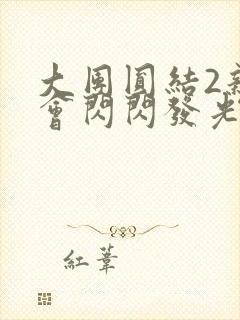 大團圓結2新
會閃閃發光
紅葦